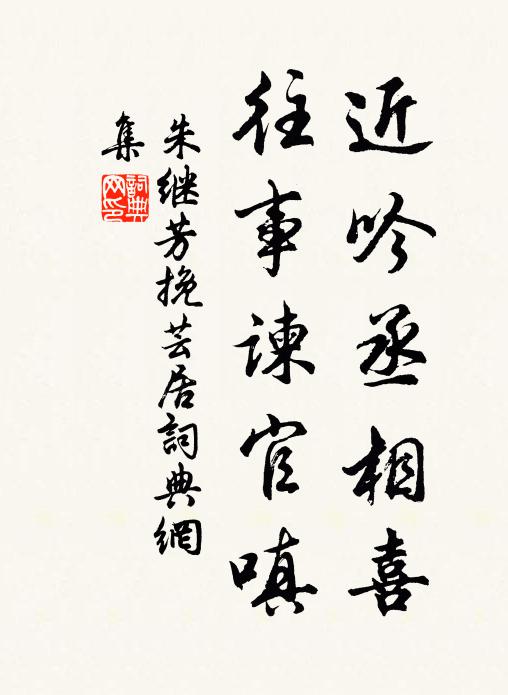 近吟丞相喜
往事諫官嗔
朱继芳挽芸居詞典網
集
詞典
网印